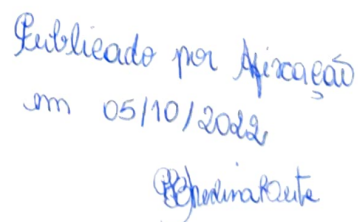 Publicado por Afixação
em 05/10/2022